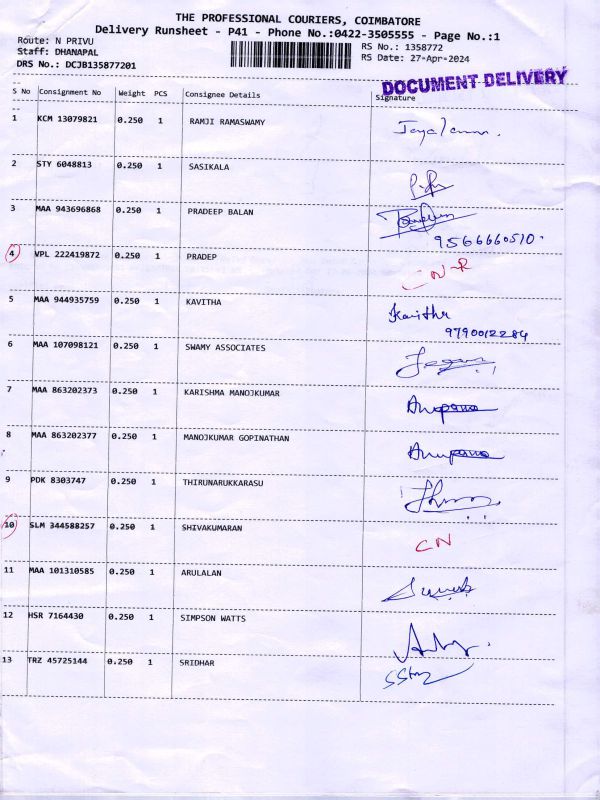 THE PROFESSIONAL COURIERS, COIMBATORE
Delivery Runsheet - P41 - Phone No.:0422-3505555 - Page No.:1
Route: N PRIVU
Staff: DHANAPAL
DRS No.: DCJB135877201
RS No.: 1358772
RS Date: 27-Apr-2024
DOCUMENT DELIVERY
S No Consignment No Weight PCS Consignee Details Signature
1 KCM 13079821 0.250 1 RAMJI RAMASWAMY
2 STY 6048813 0.250 1 SASIKALA
3 MAA 943696868 0.250 1 PRADEEP BALAN
9566660510.
4 VPL 222419872 0.250 1 PRADEP CN-R
5 MAA 944935759 0.250 1 KAVITHA Kavitha
9790012284
6 MAA 107098121 0.250 1 SWAMY ASSOCIATES
7 MAA 863202373 0.250 1 KARISHMA MANOJKUMAR Anupama
8 MAA 863202377 0.250 1 MANOJKUMAR GOPINATHAN Anupama
9 PDK 8303747 0.250 1 THIRUNARUKKARASU
10 SLM 344588257 0.250 1 SHIVAKUMARAN CN
11 MAA 101310585 0.250 1 ARULALAN
12 HSR 7164430 0.250 1 SIMPSON WATTS
13 TRZ 45725144 0.250 1 SRIDHAR